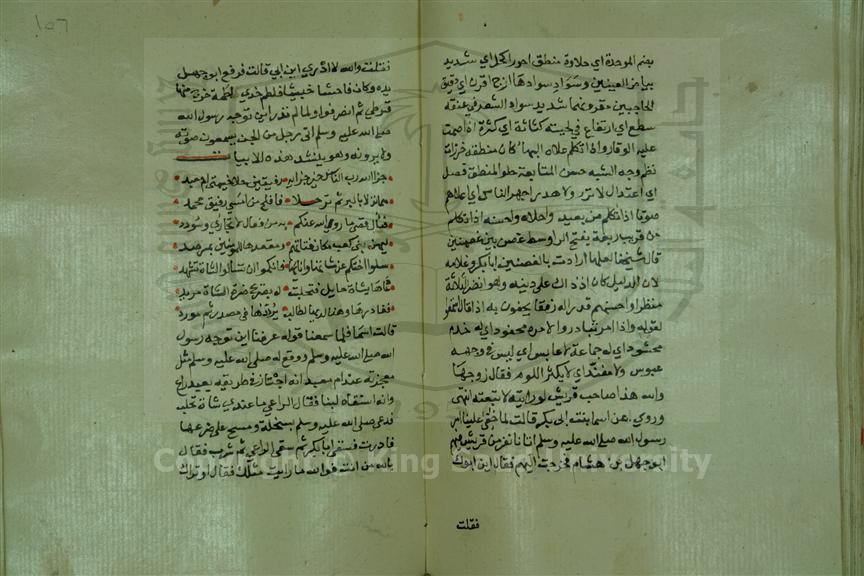 بضم الموحدة اي حلاوة منطق احور اكحل اي شديد
بياض العينين وسواد سوادها ازج اقرن اي دقيق
الحاجبين مقرونهما شديد سواد الشعر في عنقه
سطع اي ارتفاع في لحيته كثاثة اي كثرة اذا صمت
عليه الوقار واذا تكلم علاه البها كان منطقه خرزات
نظم وجه الشبه حسن المتابعة حلو المنطق فصل
اي اعتدال لا نزر ولا هدر اجهر الناس اي اعلاهم
صوتا اذا تكلم من بعيد واحلاه واحسنه اذا تكلم
من قريب ربعة بفتح الرا وسط غصن بين غصنين
قال شيخنا لعلها ارادت بالغصنين ابا بكر وغلامه
لان الدليل كان اذ ذاك على دينه وهو انضر الثلاثة
منظرا واحسنهم قدرا له رفقا يحفون به اذا قال استمعوا
لقوله واذا امر تبادروا لامره محفود اي له خدم
محشود اي له جماعة لا عابس اي ليس في وجهه
عبوس ولا مفند اي لا يكثر اللوم فقال زوجها
والله هذا صاحب قريش لو رايته لاتبعته انتهى
وروي عن اسما بنت ابي بكر قالت لما خفي علينا امر
رسول الله صلى الله عليه وسلم اتانا نفر من قريش فيهم
ابو جهل بن هشام فخرجت اليهم فقال اين ابوك
فقلت
١٥٦
فقلت والله لا ادري اين ابي قالت فرفع ابو جهل
يده وكان فاحشا خبيثا فلطم خدي لطمة خرج منها
قرطي ثم انصرفوا ولما لم ندر اين توجه رسول الله
صلى الله عليه وسلم اتى رجل من الجن يسمعون صوته
ولا يرونه وهو ينشد هذه الابيا
جزا الله رب الناس خير جزايه رفيقين حلا خيمتي ام معبد
هما نزلا بالبر ثم ترحلا فافلح من امسى رفيق محمد
فيال قصي ما زوى الله عنكم به من فعال لا تجازي وسودد
ليهن بني كعب مكان فتاتهم ومقعدها للمؤمنين بمرصد
سلوا اختكم عن شاتها وانايها فانكموا ان تسالوا الشاة تشهد
دعاها بشاة حايل فتحلبت له بصريح ضرة الشاة مزبد
فغادرها رهنا لديها لحالب يرددها في مصدر ثم مورد
قالت اسما فلما سمعنا قوله عرفنا اين توجه رسول
الله صلى الله عليه وسلم ووقع له صلى الله عليه وسلم مثل
معجزته عند ام معبد انه اجتاز في طريقه بعبد راع
وانه استقاه لبنا فقال الراعي ما عندي شاة تحلب
فدعى صلى الله عليه وسلم بسخلة ومسح على ضرعها
فادرت فسقى ابا بكر ثم سقى الراعي ثم شرب فقال
بالله من انت فوالله ما رايت مثلك فقال او تراك
Copyright © King Saud University